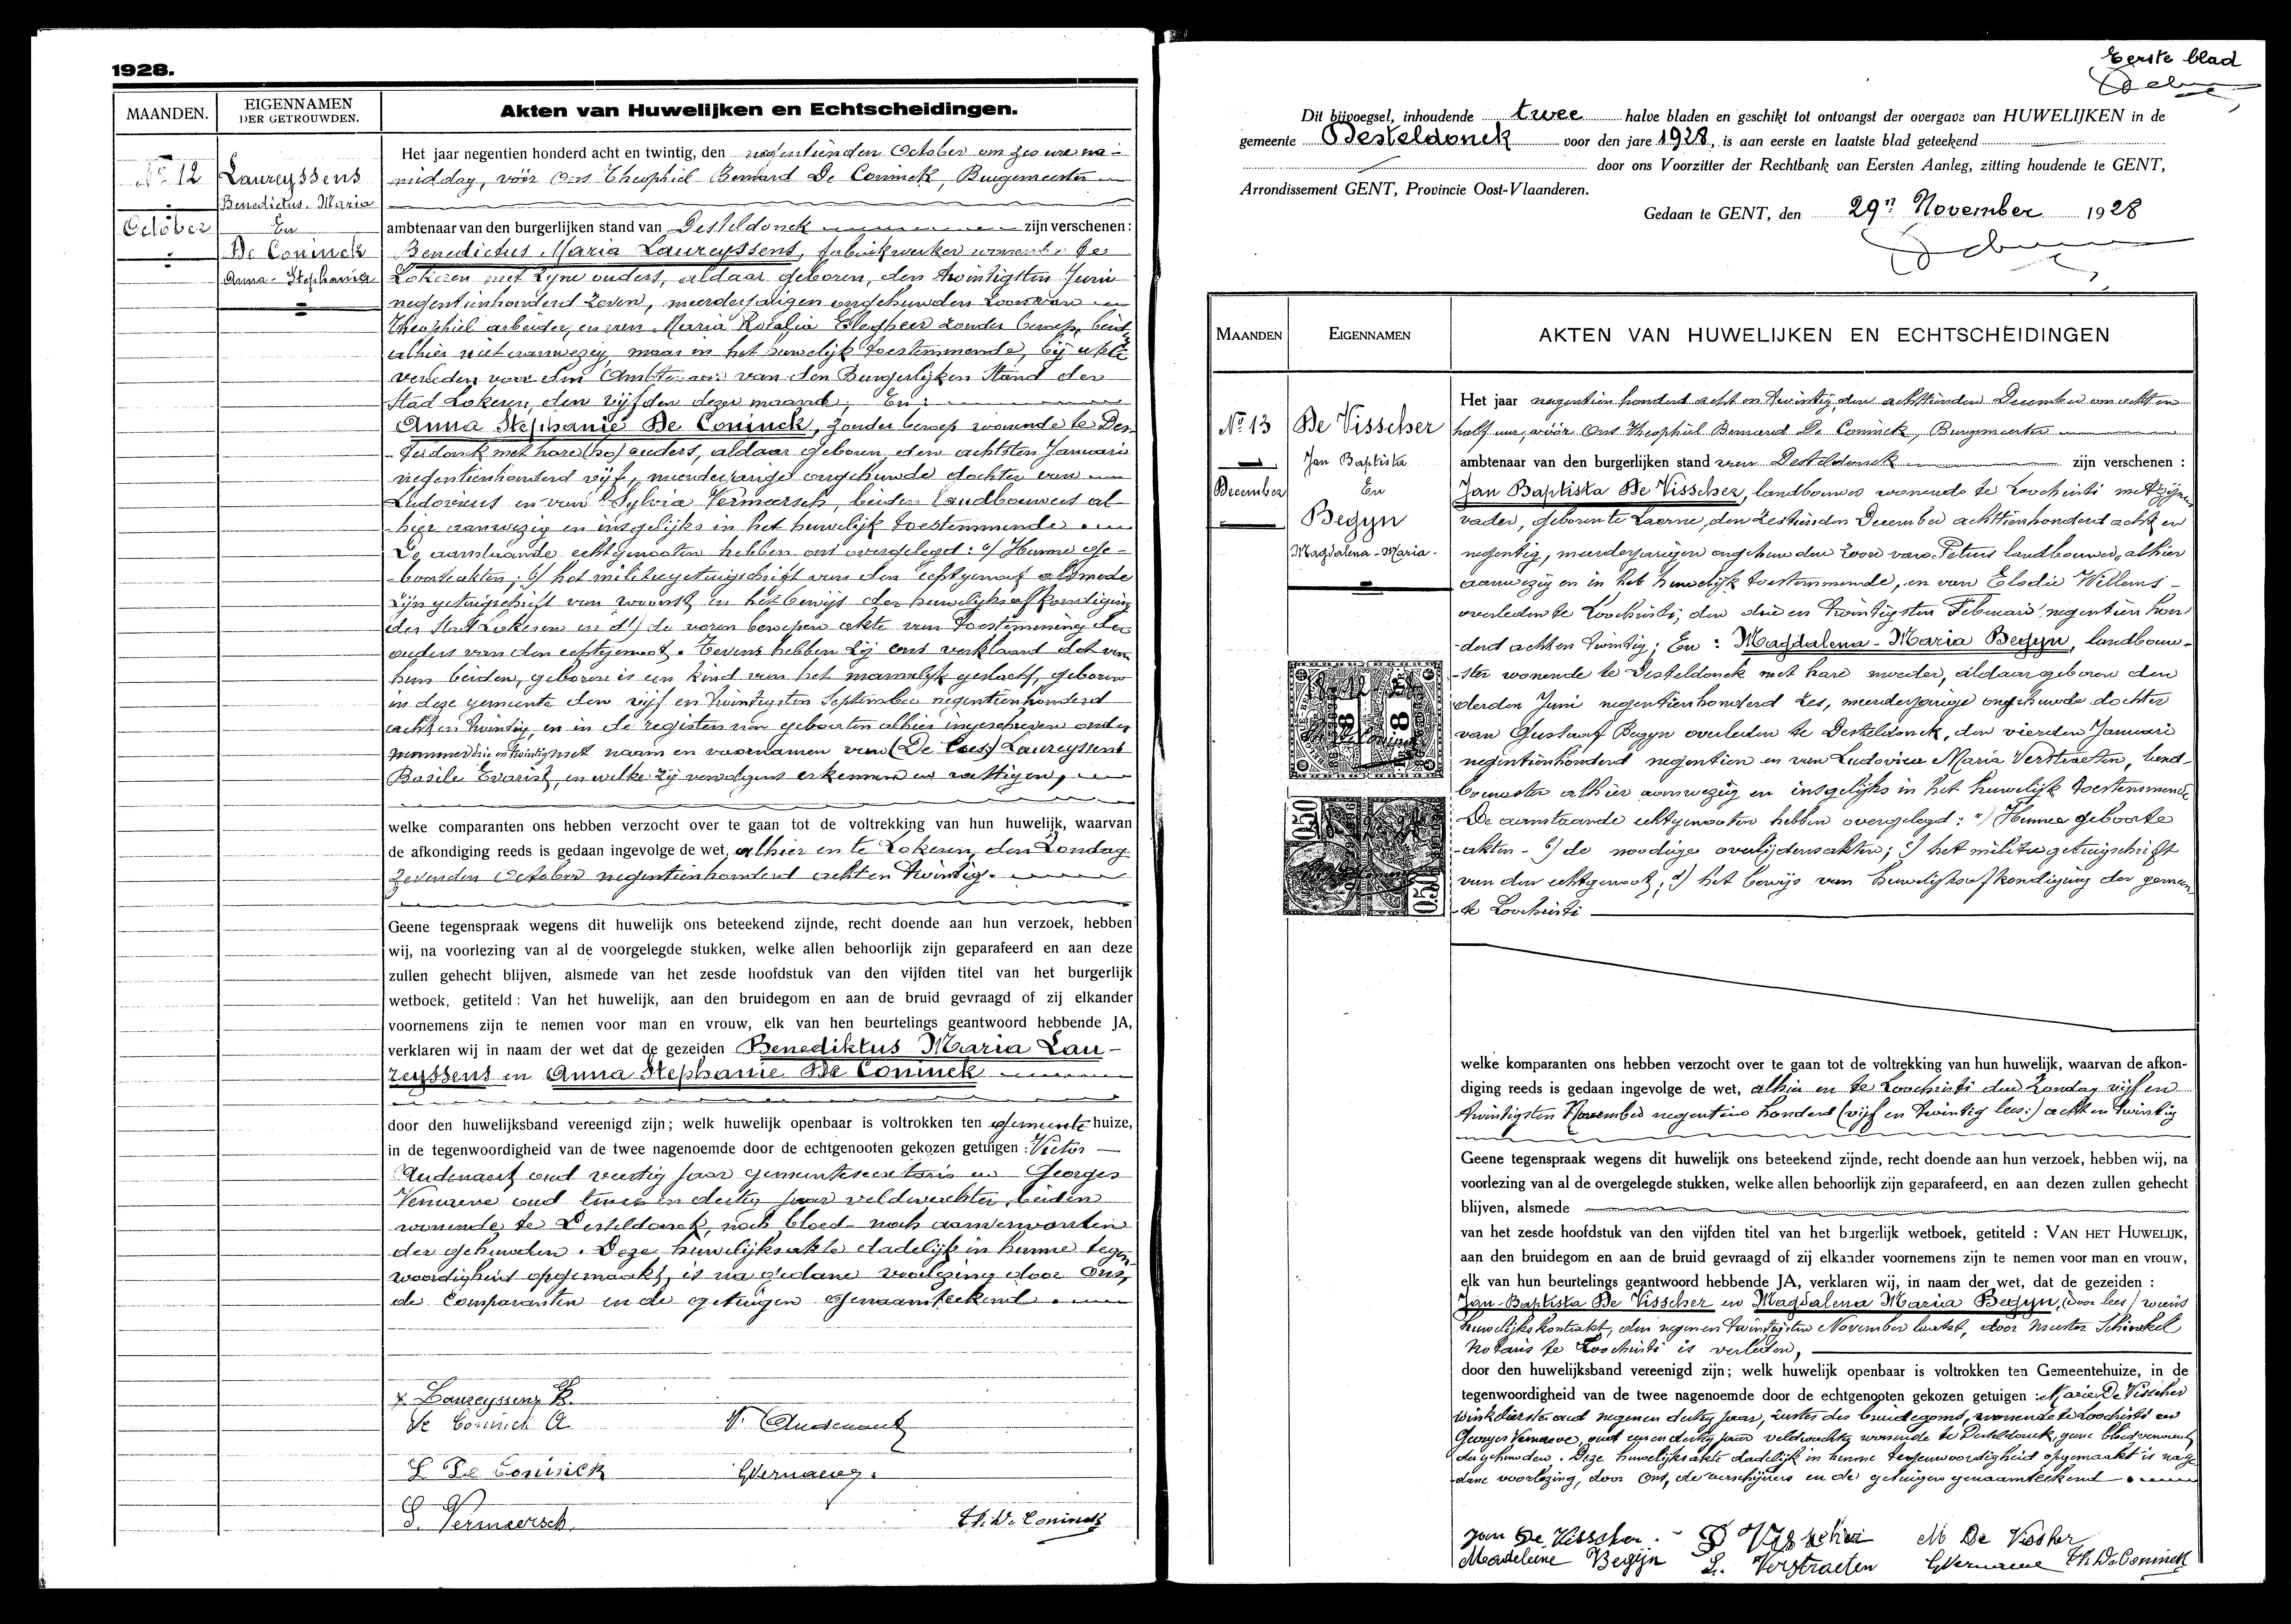 1928.
MAANDEN.
EIGENNAMEN
DER GETROUWDEN.
Akten van Huwelijken en Echtscheidingen.
No 12
October
Laureyssens
Benedictus-Maria
En
De Coninck
Anna-Stephania
Het jaar negentien honderd acht en twintig, den negentienden October om zes ure na-
middag, vóór Ons Theophiel Bernard De Coninck, Burgemeester
ambtenaar van den burgerlijken stand van Desteldonck zijn verschenen:
Benedictus Maria Laureyssens, fabriekwerker wonende te
Lokeren met zijne ouders, aldaar geboren, den twintigsten Juni
negentienhonderd zeven, meerderjarigen ongehuwden zoon van
Theophiel arbeider, en van Maria Rosalia zonder beroep, beide
alhier niet aanwezig, maar in het huwelijk toestemmende, bij akte
verleden voor den Ambtenaar van den Burgerlijken Stand der
Stad Lokeren, den vijfden dezer maand; En:
Anna Stephanie De Coninck, zonder beroep wonende te Des-
-teldonk met hare (zo) ouders, aldaar geboren, den achtsten Januari
negentienhonderd vijf, meerderjarige ongehuwde dochter van
Ludovicus en van Sylvia Vermarsch, beiden landbouwers al-
-hier aanwezig en insgelijks in het huwelijk toestemmende
De aanstaande echtgenooten hebben ons overgelegd: a/ Hunne ge-
-boorteakten; b/ het militiegetuigschrift van den echtgenoot alsmede
zijn getuigschrift van woonst en het bewijs der huwelijksafkondiging
der Stad Lokeren en d/ de voren beroepen akte van toestemming der
ouders van den echtgenoot. Tevens hebben zij ons verklaard dat van
hun beiden, geboren is een kind van het mannelijk geslacht, geboren
in deze gemeente den vijf en twintigsten September negentienhonderd
acht en twintig, en in de registers van geboorten alhier ingeschreven onder
nummer drie en twintig met naam en voornamen van (De lees) Laureyssens
Basile Evarist, en welke zij vervolgens erkennen en wettigen,
welke comparanten ons hebben verzocht over te gaan tot de voltrekking van hun huwelijk, waarvan
de afkondiging reeds is gedaan ingevolge de wet, alhier en te Lokeren, den Zondag
zevenden October negentienhonderd acht en twintig.
Geene tegenspraak wegens dit huwelijk ons beteekend zijnde, recht doende aan hun verzoek, hebben
wij, na voorlezing van al de voorgelegde stukken, welke allen behoorlijk zijn geparafeerd en aan deze
zullen gehecht blijven, alsmede van het zesde hoofdstuk van den vijfden titel van het burgerlijk
wetboek, getiteld: Van het huwelijk, aan den bruidegom en aan de bruid gevraagd of zij elkander
voornemens zijn te nemen voor man en vrouw, elk van hen beurtelings geantwoord hebbende JA,
verklaren wij in naam der wet dat de gezeiden Benediktus Maria Lau-
reyssens en Anna Stephanie De Coninck
door den huwelijksband vereenigd zijn; welk huwelijk openbaar is voltrokken ten Gemeentehuize,
in de tegenwoordigheid van de twee nagenoemde door de echtgenooten gekozen getuigen: Victor
Audenaert oud veertig jaar gemeentesecretaris en Georges
Vernaeve oud in dertig jaar veldwachter, beiden
wonende te Desteldonck, noch bloed- noch aanverwanten
der gehuwden. Deze huwelijksakte dadelijk in hunne tegen-
woordigheid opgemaakt, is na gedane voorlezing door Ons,
de Comparanten en de getuigen genaamteekend.
x Laureyssens B.
De Coninck A.
V. Audenaert
L De Coninck
GVernaeve.
S. Vermaersch
Th. De Coninck
Eerste blad
Dit bijvoegsel, inhoudende twee halve bladen en geschikt tot ontvangst der overgave van HUWELIJKEN in de
gemeente Desteldonck voor den jare 1928, is aan eerste en laatste blad geteekend
door ons Voorzitter der Rechtbank van Eersten Aanleg, zitting houdende te GENT,
Arrondissement GENT, Provincie Oost-Vlaanderen.
Gedaan te GENT, den 29n November 1928
MAANDEN
EIGENNAMEN
AKTEN VAN HUWELIJKEN EN ECHTSCHEIDINGEN
No 13
December
De Visscher
Jan Baptista
En
Begyn
Magdalena-Maria-
Het jaar negentien honderd acht en twintig, den achttienden December om acht en
half uur, vóór Ons Theophiel Bernard De Coninck, Burgemeester
ambtenaar van den burgerlijken stand van Desteldonck zijn verschenen:
Jan Baptista De Visscher, landbouwer wonende te Loochristi met zijn
vader, geboren te Laerne, den zestienden December achttienhonderd acht en
negentig, meerderjarigen ongehuwden zoon van Petrus landbouwer, alhier
aanwezig en in het huwelijk toestemmende, en van Elodie Willems-
overleden te Loochristi, den drie en twintigsten Februari negentien hon-
-derd acht en twintig; En: Magdalena-Maria Begyn, landbouw-
-ster wonende te Desteldonck met hare moeder, aldaar geboren den
derden Juni negentienhonderd zes, meerderjarige ongehuwde dochter
van Gustaaf Begyn overleden te Desteldonck, den vierden Januari
negentienhonderd negentien en van Ludovica Maria Verstraeten, land-
bouwster alhier aanwezig en insgelijks in het huwelijk toestemmende
De aanstaande echtgenooten hebben overgelegd: a/ Hunne geboorte
-akten- b/ de noodige overlijdensakten; c/ het militiegetuigschrift
van den echtgenoot; d/ het bewijs van huwelijksafkondiging der gemeen-
-te Loochristi
0.50
0.50
welke komparanten ons hebben verzocht over te gaan tot de voltrekking van hun huwelijk, waarvan de afkon-
diging reeds is gedaan ingevolge de wet, alhier en te Loochristi den Zondag vijf en
twintigsten November negentien honderd (vijf en twintig lees:) acht en twintig
Geene tegenspraak wegens dit huwelijk ons beteekend zijnde, recht doende aan hun verzoek, hebben wij, na
voorlezing van al de overgelegde stukken, welke allen behoorlijk zijn geparafeerd, en aan dezen zullen gehecht
blijven, alsmede
van het zesde hoofdstuk van den vijfden titel van het burgerlijk wetboek, getiteld: VAN HET HUWELIJK,
aan den bruidegom en aan de bruid gevraagd of zij elkander voornemens zijn te nemen voor man en vrouw,
elk van hun beurtelings geantwoord hebbende JA, verklaren wij, in naam der wet, dat de gezeiden:
Jan-Baptista De Visscher en Magdalena Maria Begyn, (door lees) wiens
huwelijkskontrakt, den negen en twintigsten November laatst, door meester Schinckel
notaris te Loochristi is verleden,
door den huwelijksband vereenigd zijn; welk huwelijk openbaar is voltrokken ten Gemeentehuize, in de
tegenwoordigheid van de twee nagenoemde door de echtgenooten gekozen getuigen: Marie De Visscher
winkelierster oud negen en dertig jaar, zuster des bruidegoms, wonende te Loochristi en
Georges Vernaeve, oud een en dertig jaar veldwachter wonende te Desteldonck, geene bloedverwant
der gehuwden. Deze huwelijksakte dadelijk in hunne tegenwoordigheid opgemaakt is na ge-
-dane voorlezing, door Ons, de verschijners en de getuigen genaamteekend
Jan De Visscher.
M De Visscher
Madeleine Begijn
L. Verstraeten
GVernaeve
Th. De Coninck